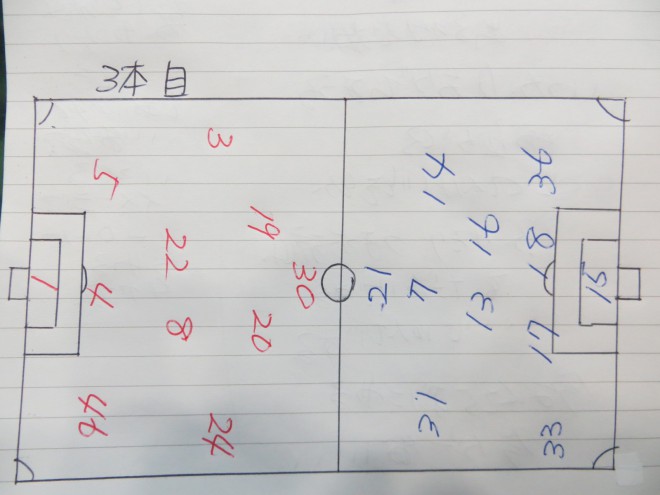 3本目
3
5
19
22
30
1
4
8
20
46
24
14
36
16
18
21
7
15
13
17
31
33